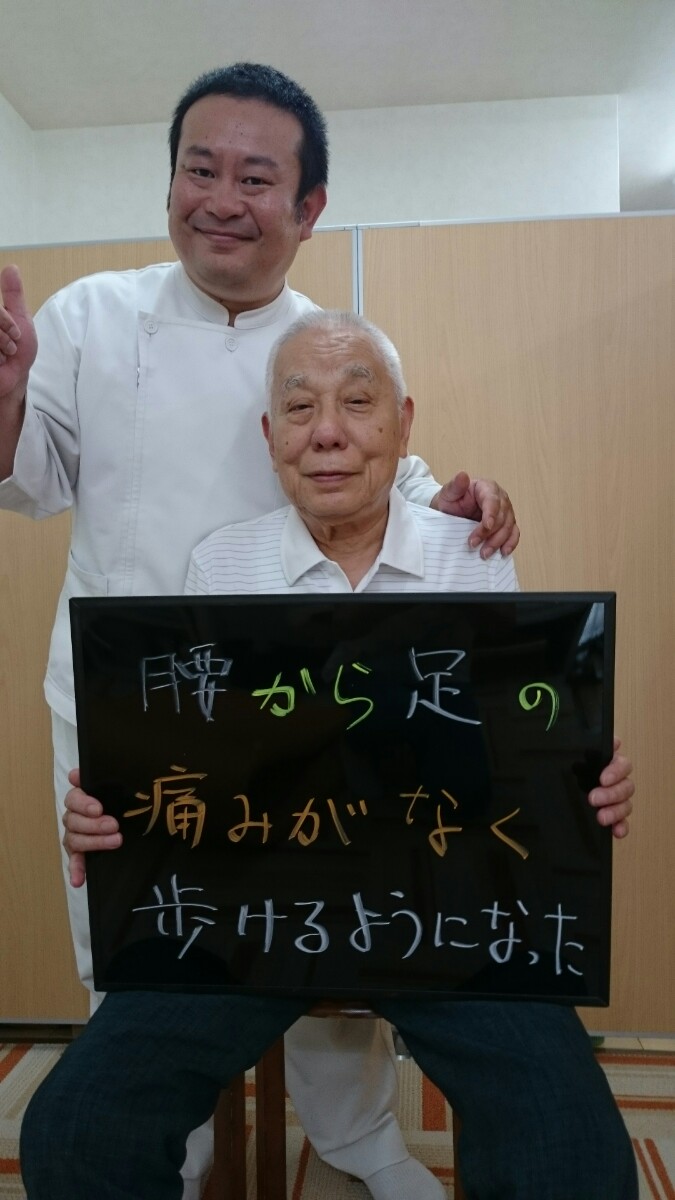 腰から足の
痛みがなく
歩けるようになった